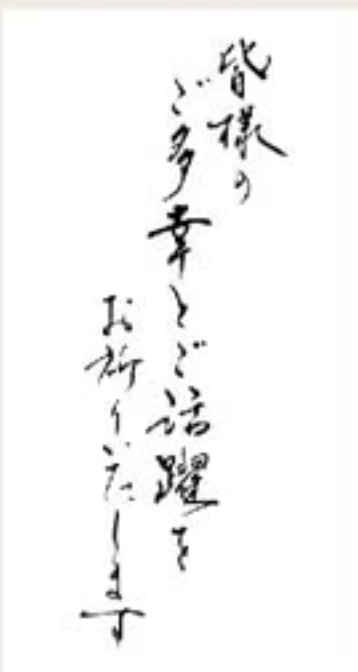 皆様の
ご多幸とご活躍を
お祈りいたします